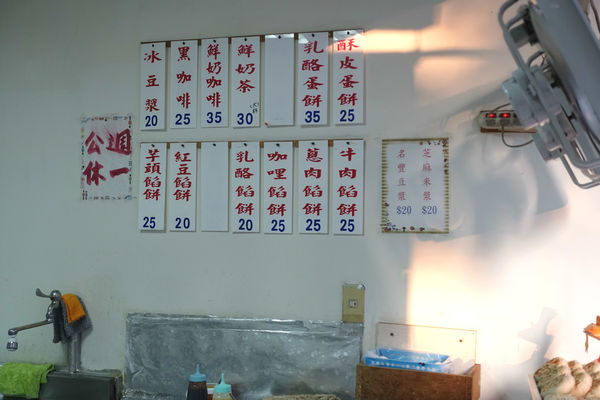 酥皮蛋餅 25
乳酪蛋餅 35
鮮奶茶 30
鮮奶咖啡 35
黑咖啡 25
冰豆漿 20
牛肉餡餅 25
蔥肉餡餅 25
咖哩餡餅 25
乳酪餡餅 20
紅豆餡餅 20
芋頭餡餅 25
芝麻米漿 $20
名豐豆漿 $20
週一
公休